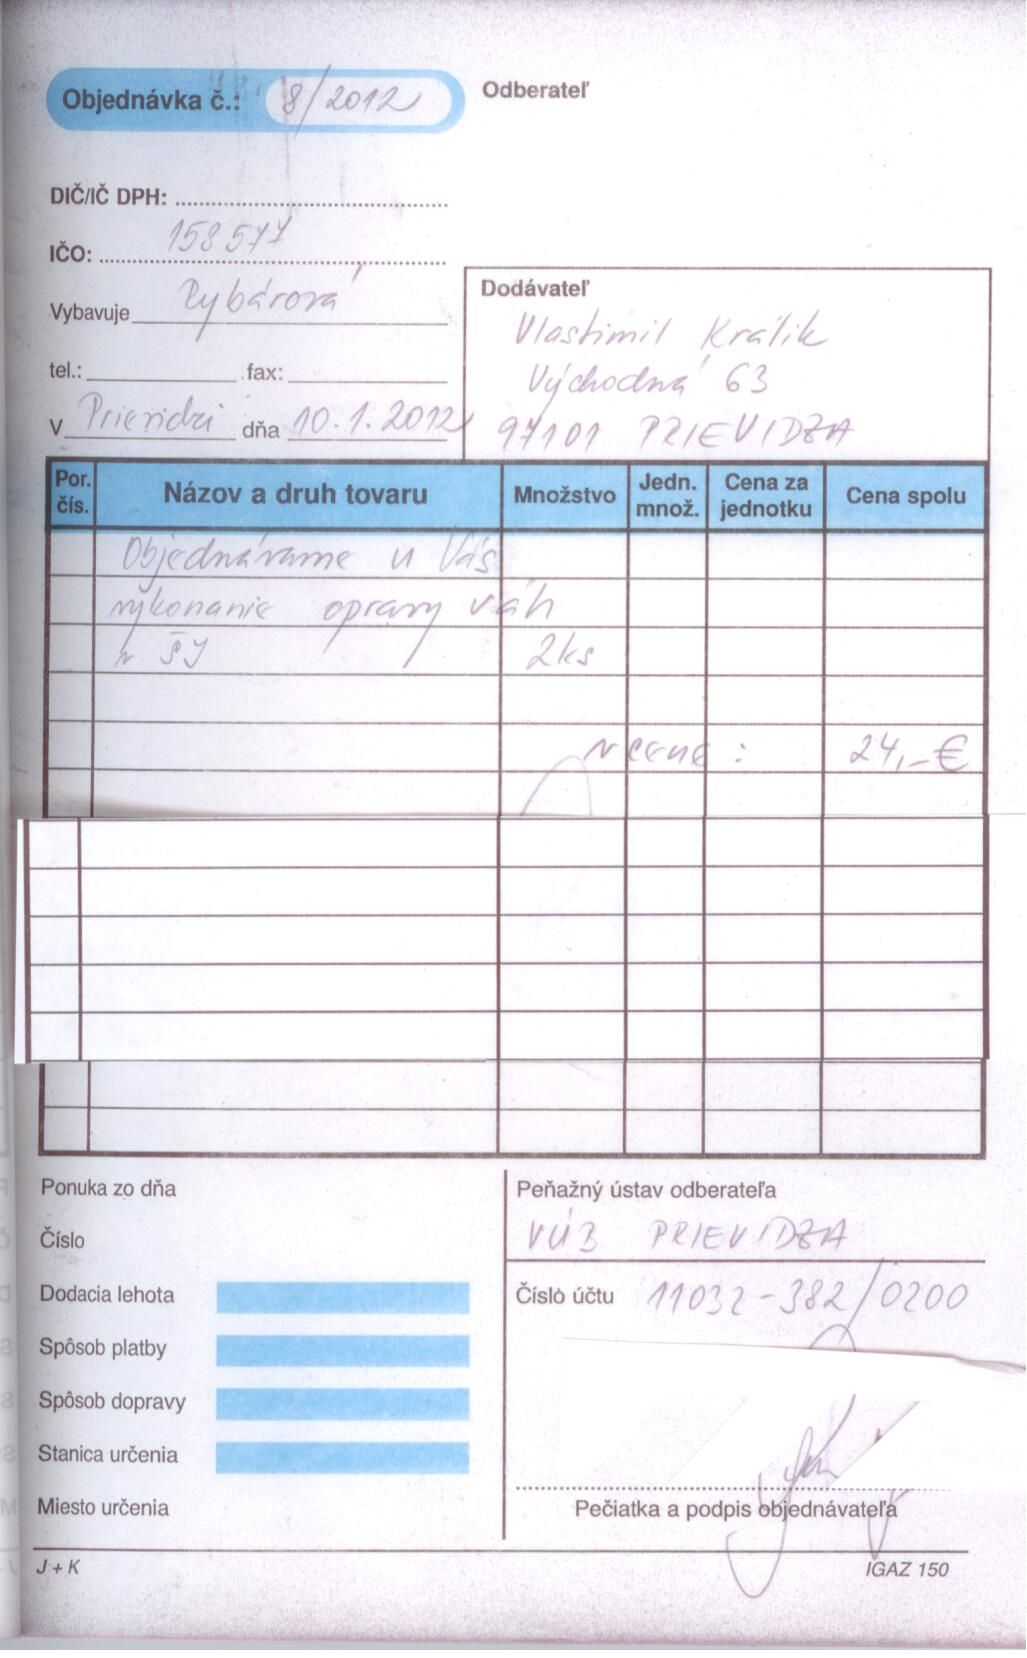 Objednávka č.: 8/2012
Odberateľ
DIČ/IČ DPH:
IČO: 158577
Vybavuje Rybárová
tel.: fax:
V Prievidzi dňa 10.1.2012
Dodávateľ
Vlastimil Králik
Východná 63
97101 PRIEVIDZA
Por. čís. Názov a druh tovaru Množstvo Jedn. množ. Cena za jednotku Cena spolu
Objednávame u Vás
vykonanie opravy váh
v ŠJ 2ks
v cene : 24,-€
Ponuka zo dňa
Číslo
Dodacia lehota
Spôsob platby
Spôsob dopravy
Stanica určenia
Miesto určenia
Peňažný ústav odberateľa
VÚB PRIEVIDZA
Číslo účtu 11032-382/0200
Pečiatka a podpis objednávateľa
J + K
IGAZ 150